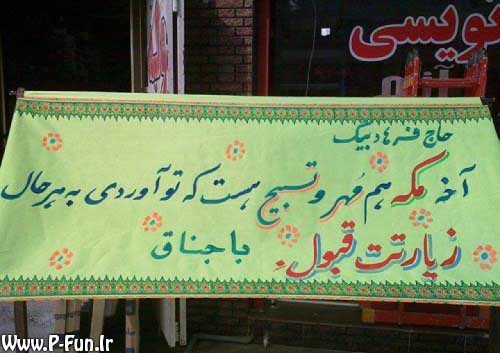 ویسی
حاج فرهاد بیگ
آخه مکه هم مهر و تسبیح هست که تو آوردی به هر حال
زیارتت قبول. باجناق
Www.P-Fun.Ir